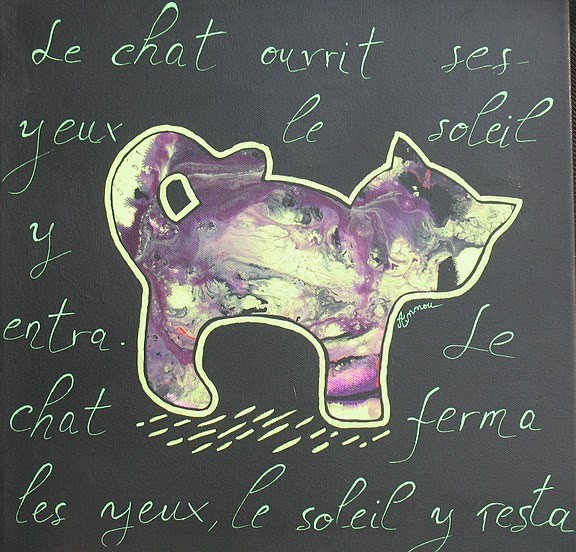 Le chat ouvrit ses
yeux le soleil
y
entra. Le
chat ferma
les yeux, le soleil y resta
Annou